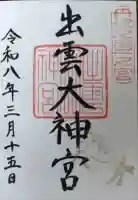 出雲大神宮
令和八年三月十五日